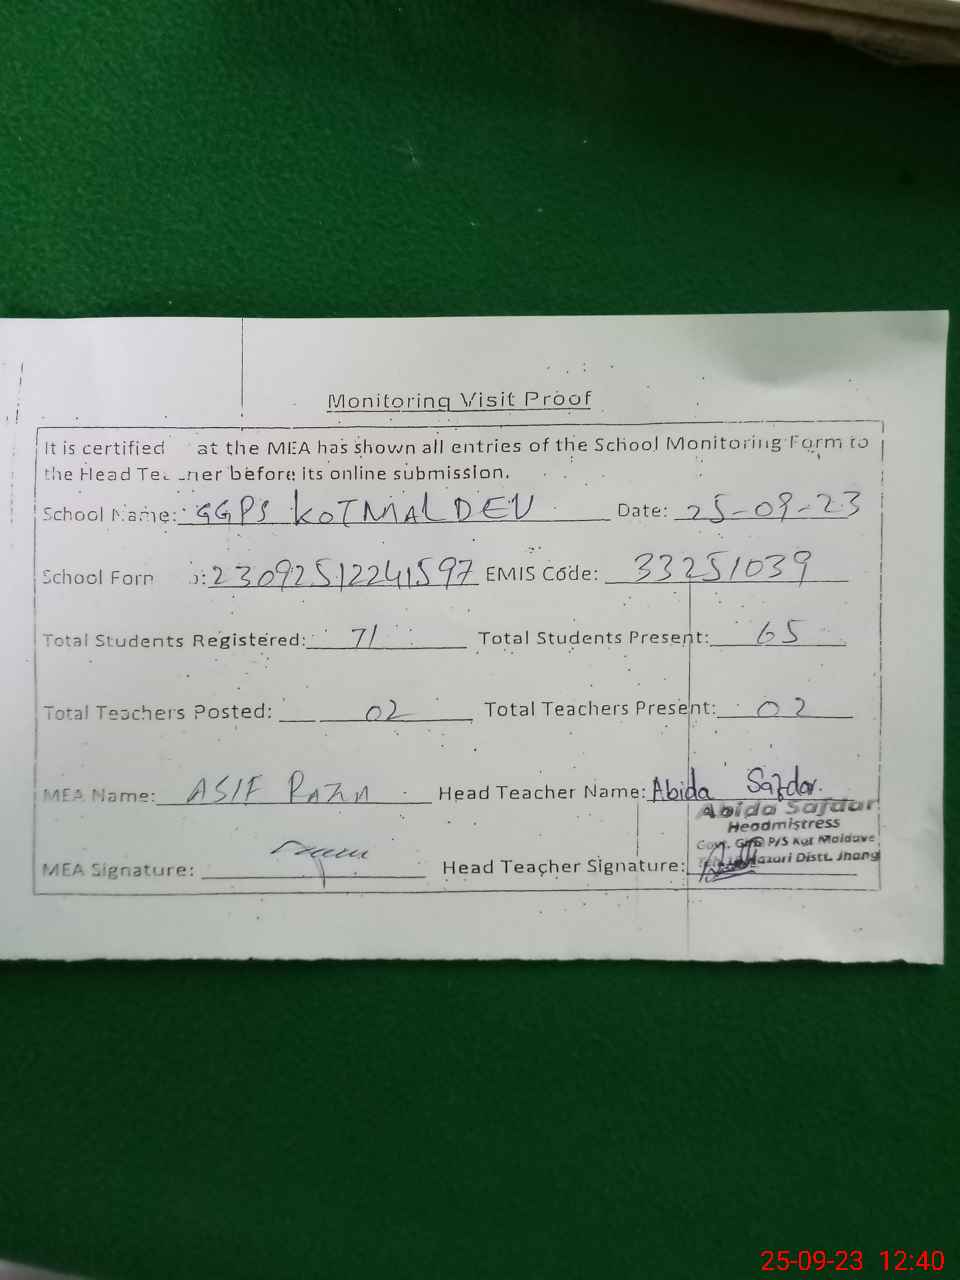 Monitoring Visit Proof
It is certified at the MEA has shown all entries of the School Monitoring Form to
the Head Tea ner before its online submission.
School Name: GGPS KOTMALDEV Date: 25-09-23
School Forn o: 230925122241597 EMIS Code: 33251039
Total Students Registered: 71 Total Students Present: 65
Total Teachers Posted: 02 Total Teachers Present: 02
MEA Name: ASIF RAZA Head Teacher Name: Abida Safdar.
Abida Safdar
Headmistress
P/S Kot Maldave
Distt. Jhang
MEA Signature: Head Teacher Signature:
25-09-23 12:40